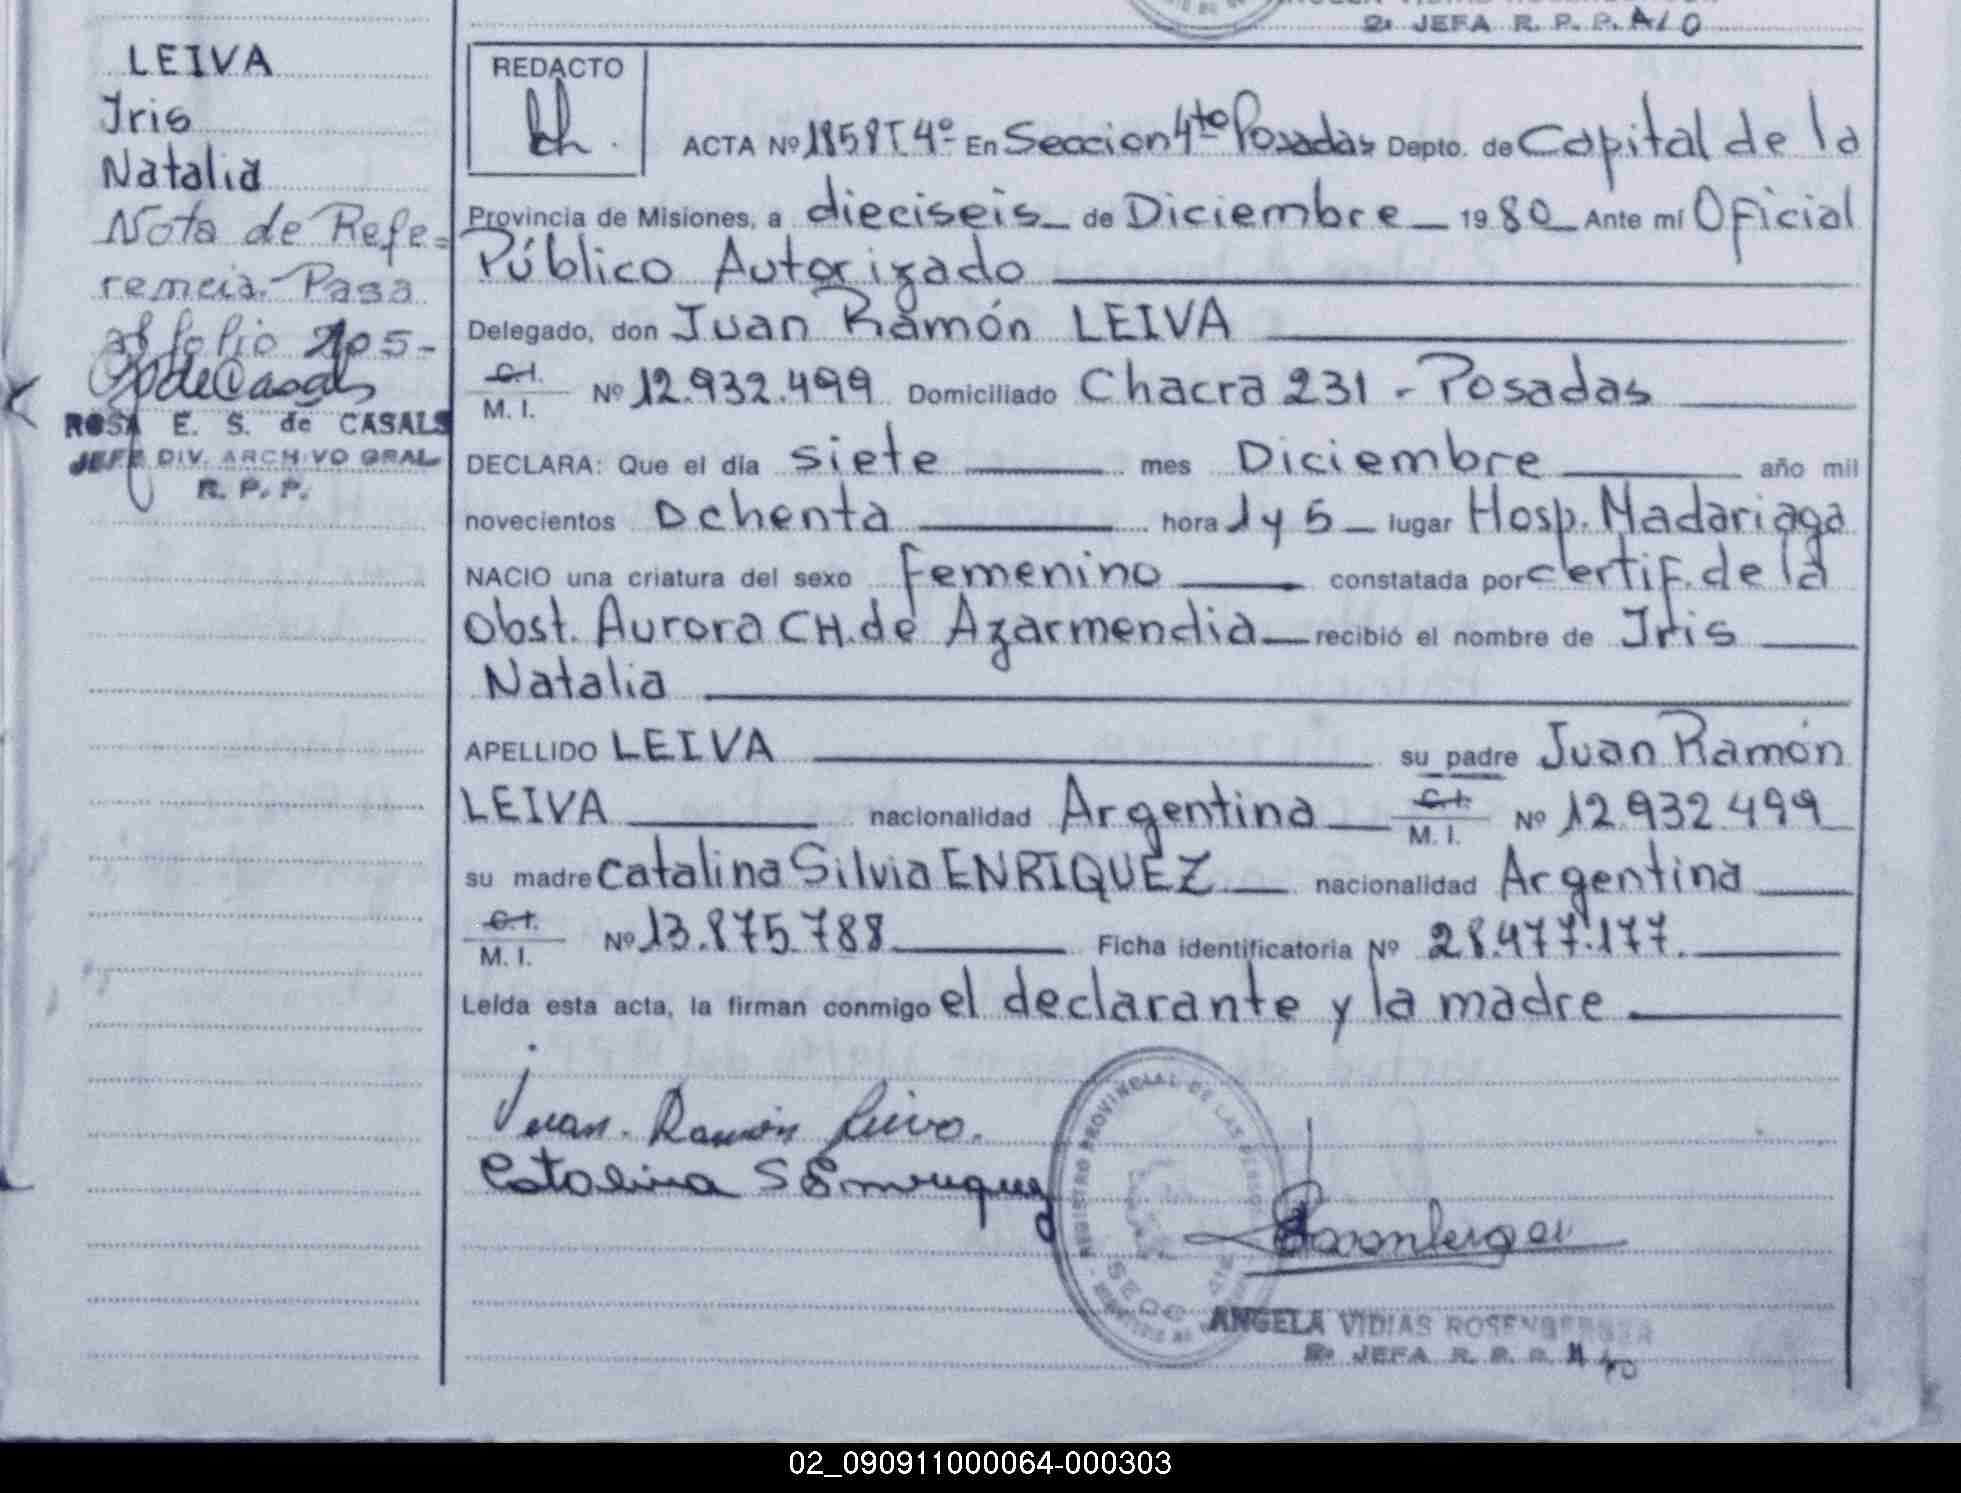 2º JEFA R. P. P. A/O
LEIVA
Iris
Natalia
Nota de Refe=
rencia. Pasa
al folio 205-
ROSA E. S. de CASALS
JEFE DIV. ARCHIVO GRAL
R. P. P.
REDACTO
ACTA Nº 1858 T. 4º En Seccion 4to Posadas Depto. de Capital de la
Provincia de Misiones, a dieciseis de Diciembre 1980 Ante mí Oficial
Público Autorizado
Delegado, don Juan Ramón LEIVA
C.I. M. I. Nº 12.932.499 Domiciliado Chacra 231 - Posadas
DECLARA: Que el día siete mes Diciembre año mil
novecientos Ochenta hora 1 y 5 lugar Hosp. Madariaga
NACIO una criatura del sexo femenino constatada por certif. de la
Obst. Aurora CH. de Azarmendia recibió el nombre de Iris
Natalia
APELLIDO LEIVA su padre Juan Ramón
LEIVA nacionalidad Argentina C.I. M. I. Nº 12.932.499
su madre Catalina Silvia ENRIQUEZ nacionalidad Argentina
C.I. M. I. Nº 13.875.788 Ficha identificatoria Nº 28.477.177.
Leída esta acta, la firman conmigo el declarante y la madre
Juan Ramón Leiva.
Catalina S Enriquez
REGISTRO PROVINCIAL DE LAS
ANGELA VIDIAS ROSENBERGER
2º JEFA R. P. P.
02_090911000064-000303